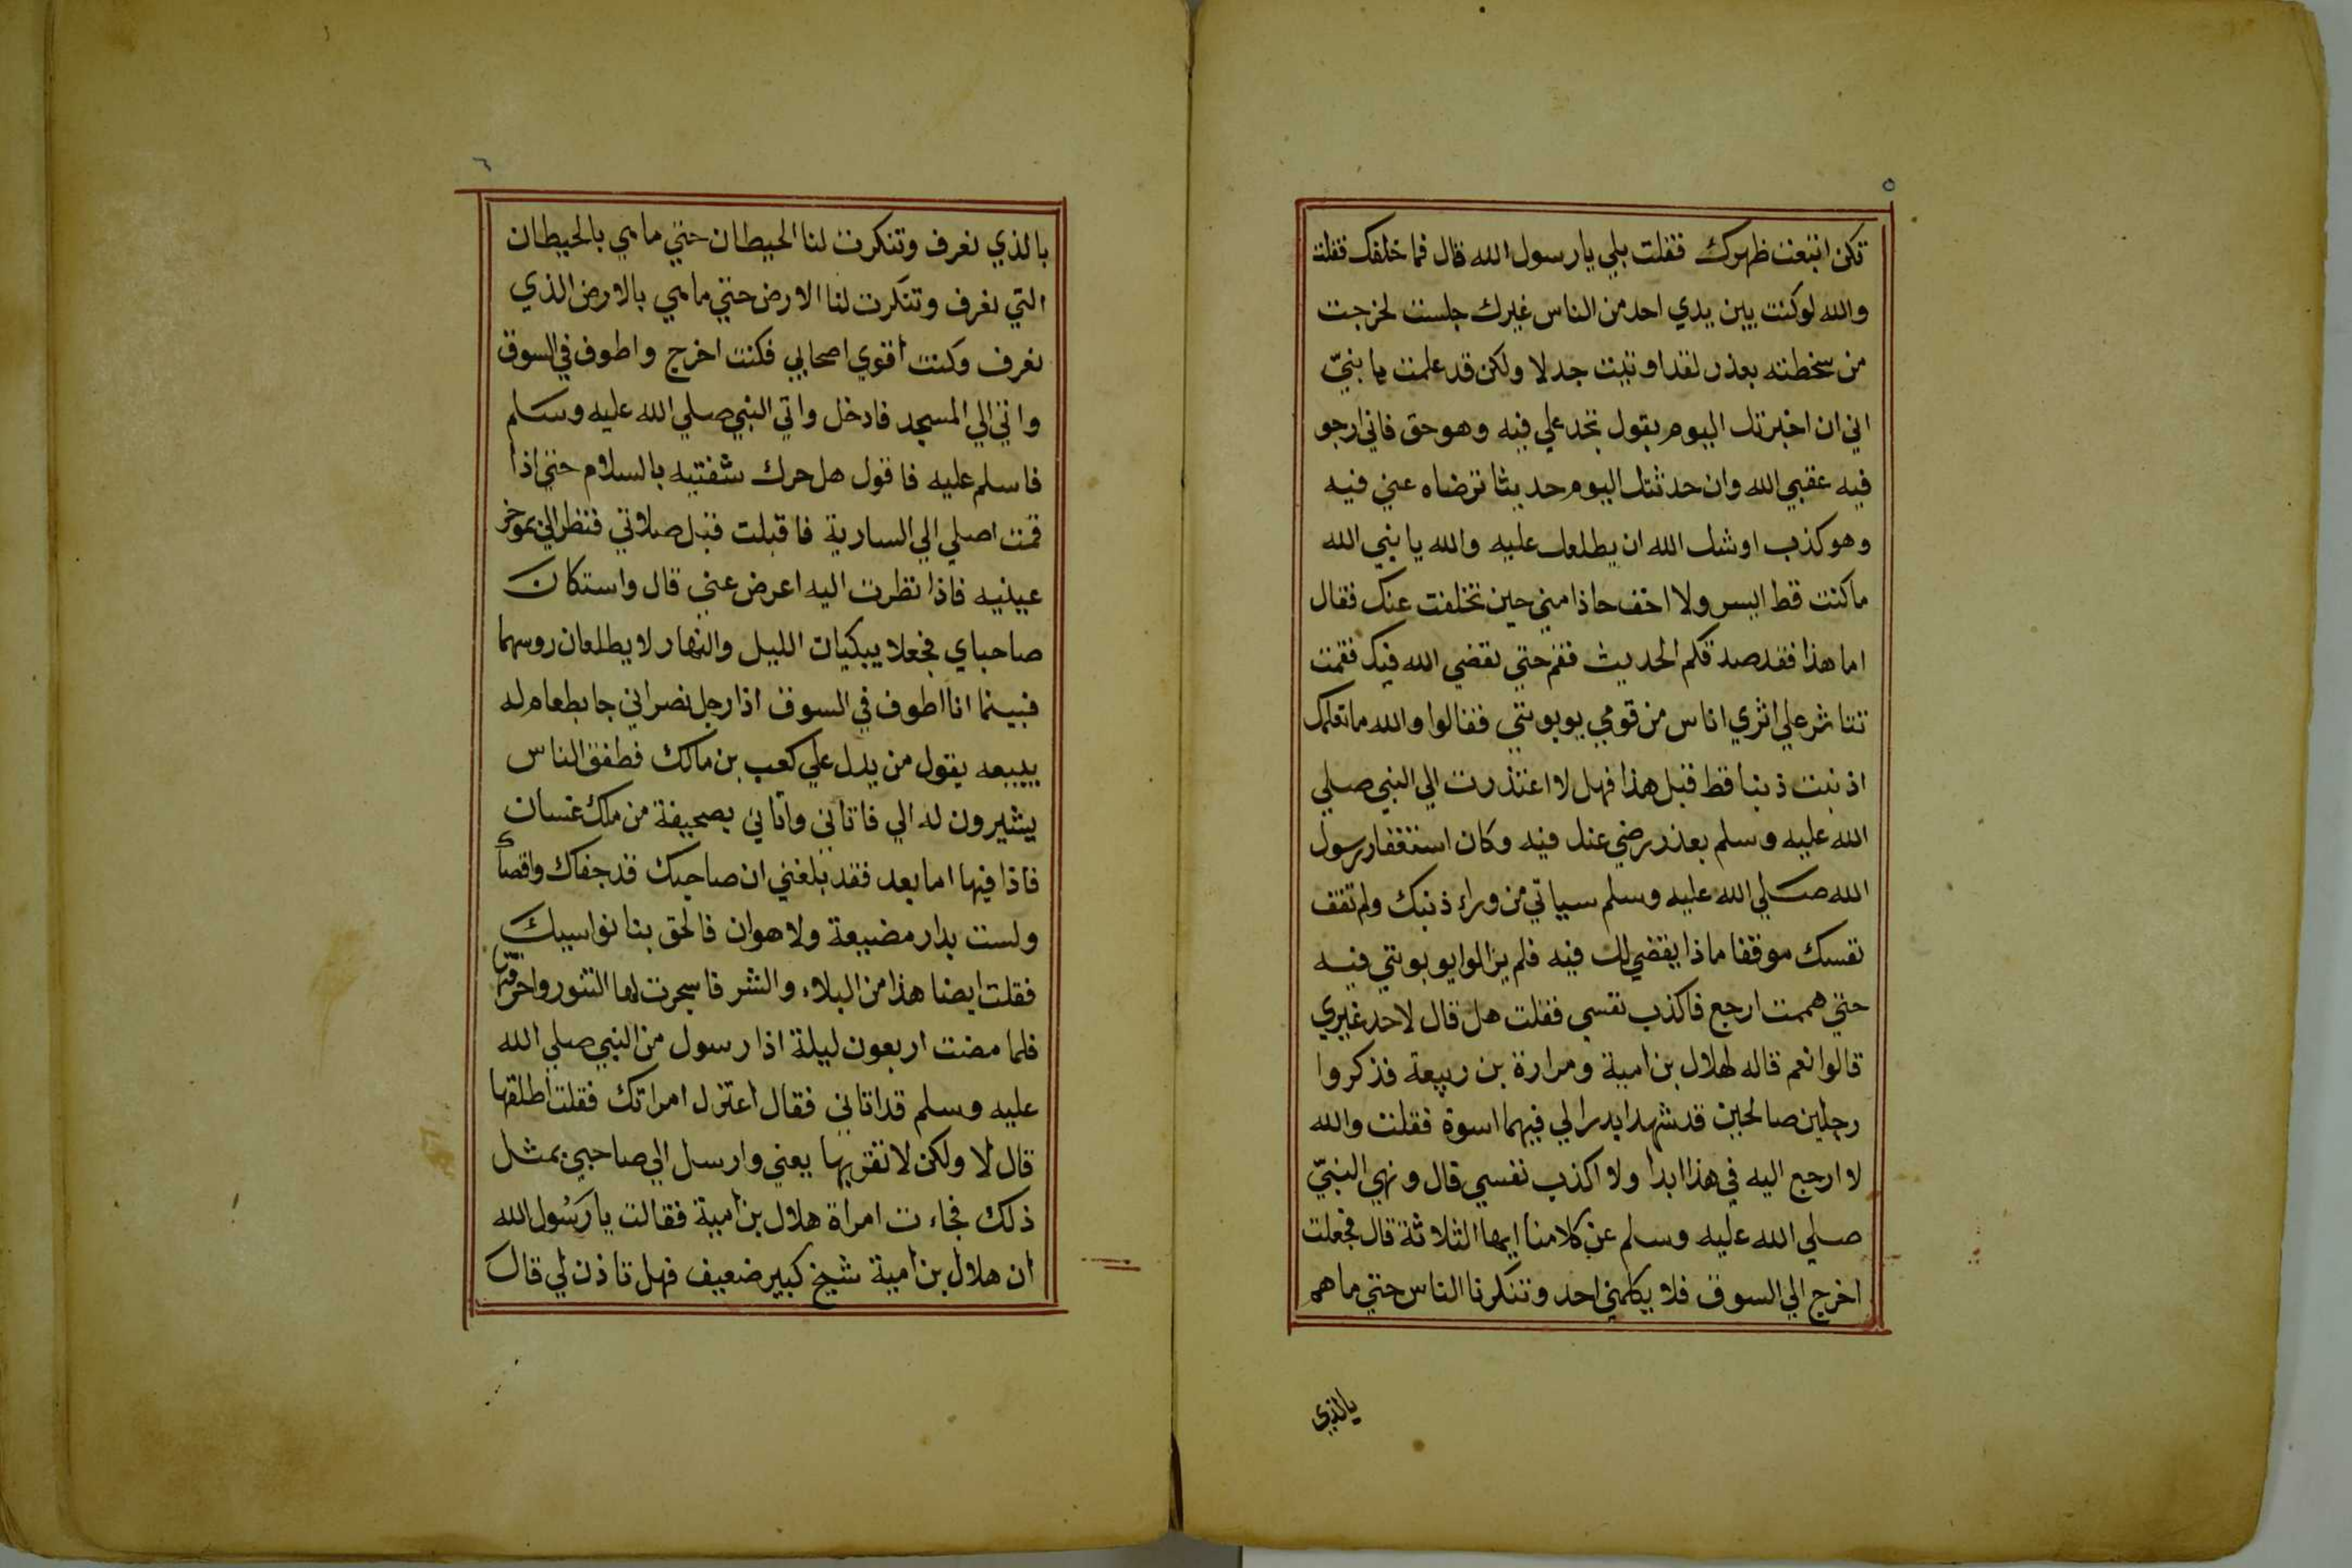 ٥
تكن ابتعت ظهرك فقلت بلي يا رسول الله قال فما خلفك فقلت
والله لو كنت بين يدي احد من الناس غيرك جلست لخرجت
من سخطته بعذر لقد اوتيت جدلا ولكن قد علمت يا نبيّ
اني ان اخبرتك اليوم بقول تجد علي فيه وهو حق فاني ارجو
فيه عقبي الله وان حدثتك اليوم حديثا ترضاه عني فيه
وهو كذب اوشك الله ان يطلعك عليه والله يا نبي الله
ما كنت قط ايسر ولا اخف حاذا مني حين تخلفت عنك فقال
اما هذا فقد صدقكم الحديث فقم حتي يقضي الله فيك فقمت
علي اثري اناس من قومي يوبونتي فقالوا والله ما نعلمك
اذنبت ذنبا قط قبل هذا فهل لا اعتذرت الي النبي صلي
الله عليه وسلم بعذر رضي عنك فيه وكان استغفار رسول
الله صلي الله عليه وسلم سياتي من وراء ذنبك ولم تقف
نفسك موقفا ماذا يقضي لك فيه فلم يزالوا يوبونتي فيه
حتي هممت ارجع فاكذب نفسي فقلت هل قال لاحد غيري
قالوا نعم قاله لهلال بن امية ومرارة بن ربيعة فذكروا
رجلين صالحين قد شهدا بدرا لي فيهما اسوة فقلت والله
لا ارجع اليه في هذا ابدا ولا اكذب نفسي قال ونهي النبيّ
صلي الله عليه وسلم عن كلامنا ايها الثلاثة قال فجعلت
اخرج الي السوق فلا يكلمني احد وتنكرنا الناس حتي ما هم
بالذي
٦
بالذي نعرف وتنكرت لنا الحيطان حتي ما هي بالحيطان
التي نعرف وتنكرت لنا الارض حتي ما هي بالارض الذي
نعرف وكنت اقوي اصحابي فكنت اخرج واطوف في السوق
واتي الي المسجد فادخل واتي النبي صلي الله عليه وسلم
فاسلم عليه فاقول هل حرك شفتيه بالسلام حتي اذا
قمت اصلي الي السارية فاقبلت قبل صلاتي فنظر الي بموخر
عينيه فاذا نظرت اليه اعرض عني قال واستكان
صاحباي فجعلا يبكيان الليل والنهار لا يطلعان روسهما
فبينما انا اطوف في السوق اذا رجل نصراني جا بطعام له
يبيعه يقول من يدل علي كعب بن مالك فطفق الناس
يشيرون له الي فاتاني واتاني بصحيفة من ملك غسان
فاذا فيها اما بعد فقد بلغني ان صاحبك قد جفاك واقصاك
ولست بدار مضيعة ولا هوان فالحق بنا نواسيك
فقلت ايضا هذا من البلاء والشر فاسجرت لها التنور واحرقتها
فلما مضت اربعون ليلة اذا رسول من النبي صلي الله
عليه وسلم قد اتاني فقال اعتزل امراتك فقلت اطلقها
قال لا ولكن لا تقربها يعني وارسل الي صاحبي بمثل
ذلك فجاءت امراة هلال بن امية فقالت يا رسول الله
ان هلال بن امية شيخ كبير ضعيف فهل تاذن لي قال